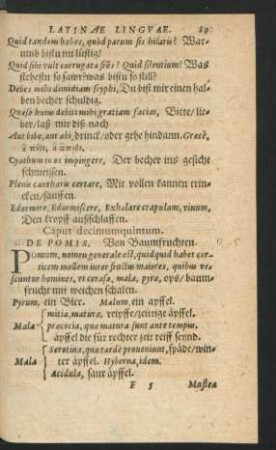 LATINAE LINGVAE. 89
Quid tandem habes, quòd parum sis hilaris? War-
umb bistu nit lustig?
Quid sibi vult corrugata frõs? Quid silentium? Was
sihestu so sawr? was bistu so still?
Debes mihi dimidiam scyphi, Du bist mir einen hal-
ben becher schuldig.
Quæso hanc debiti mihi gratiam facias, Bitte/ lie-
ber/ laß mir diß nach
Aut bibe, aut abi, drinck/ oder gehe hindann. Græcè,
ἢ πίθι, ἢ ἄπιθι.
Cyathum in os impingere, Der becher ins gesicht
schmeissen.
Plenis cantharis certare, Mit vollen kannen trin-
cken/ sauffen.
Edormire, Edormiscere, Exhalare crapulam, vinum,
Den tropff außschlaffen.
Caput decimumquintum.
DE POMIS. Von Baumfruchten.
POmum, nomen generale est, quidquid habet cor-
ticem mollem inter fructus maiores, quibus ve-
scuntur homines, vt cerasa, mala, pyra, ops/ baum-
frucht mit weichen schalen.
Pyrum, ein Bier. Malum, ein apffel.
Mala mitia, matura, reiffe/ zeitige äpffel.
præcocia, quæ matura sunt ante tempus,
äpffel die für rechter zeit reiff seynd.
Mala Serotina, quæ tardè proueniunt, späde/ win-
ter äpffel. Hyberna, idem.
Acidula, saur äpffel.
F 5 Mustea